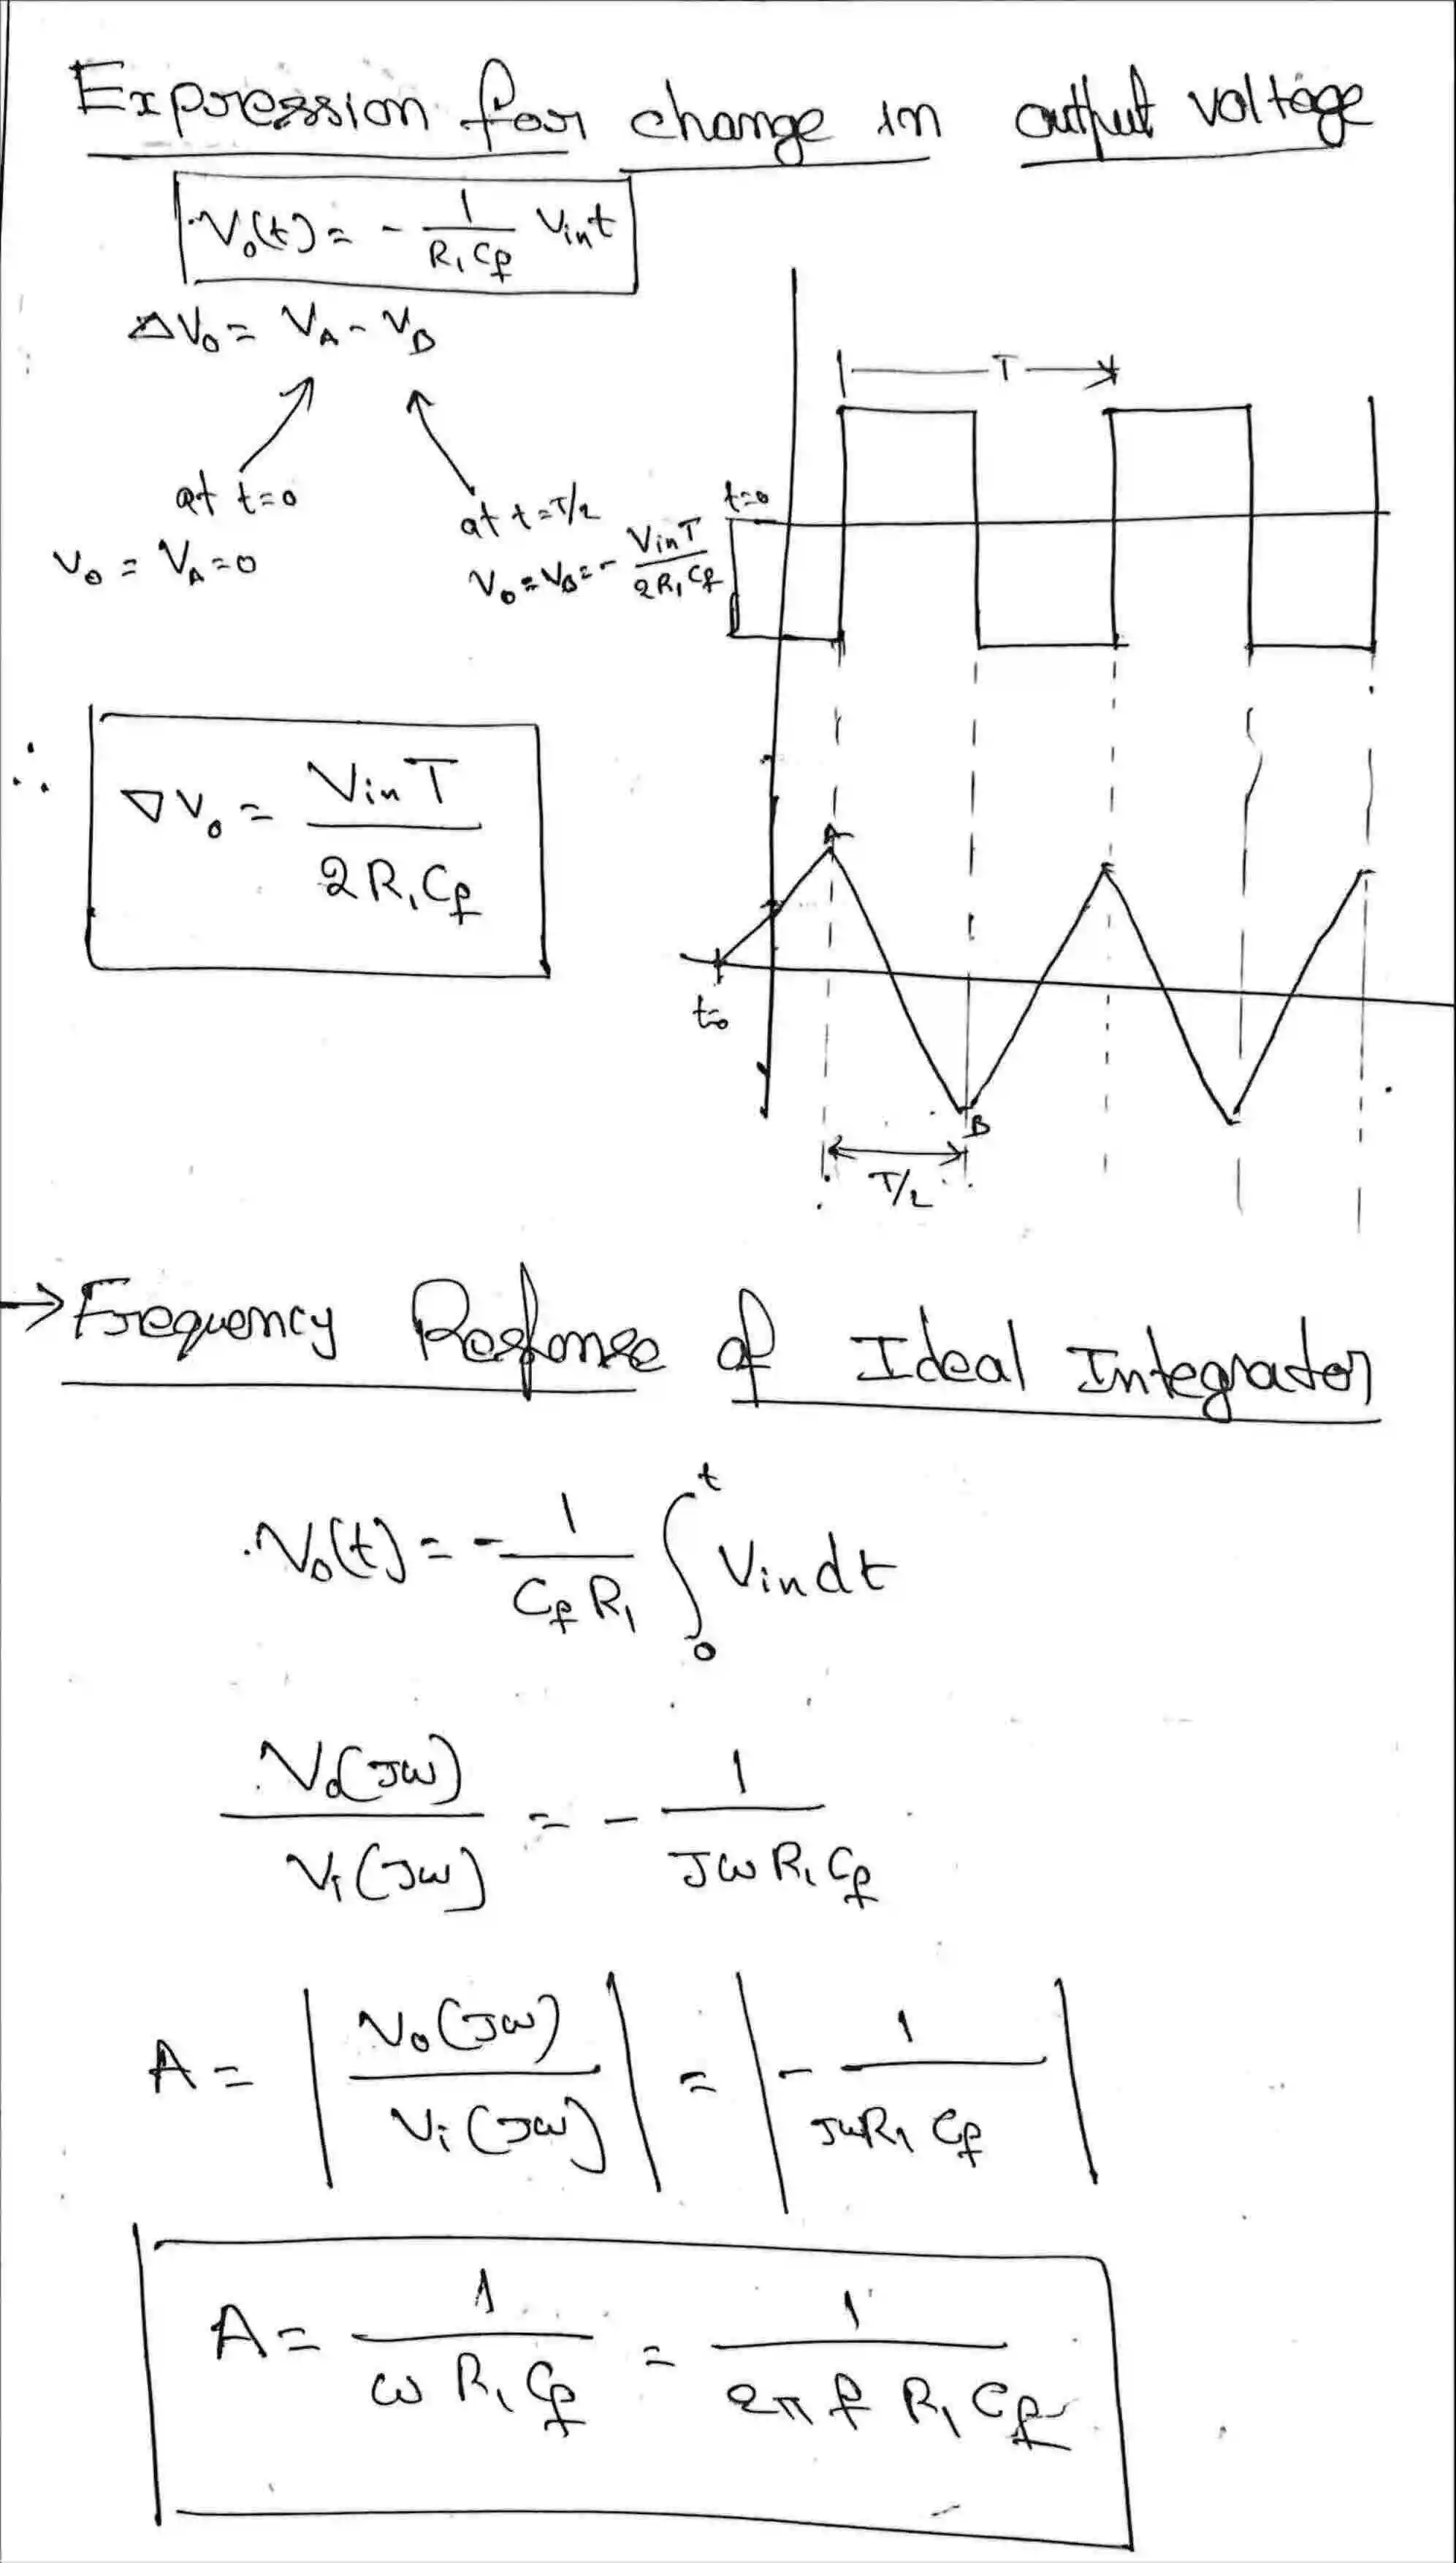 Expression for change in output voltage
V₀(t) = - 1/(R₁ C_f) V_in t
ΔV₀ = V_A - V_B
at t=0
V₀ = V_A = 0
at t = T/2
V₀ = V_B = - V_in T/(2R₁ C_f)
∴ ∇V₀ = V_in T/(2 R₁ C_f)
T
t=0
A
t=0
B
T/2
→ Frequency Response of Ideal Integrator
V₀(t) = - 1/(C_f R₁) ∫₀ᵗ V_in dt
V₀(Jω)/V_i(Jω) = - 1/(Jω R₁ C_f)
A = | V₀(Jω)/V_i(Jω) | = | - 1/(JωR₁ C_f) |
A = 1/(ω R₁ C_f) = 1/(2π f R₁ C_f)